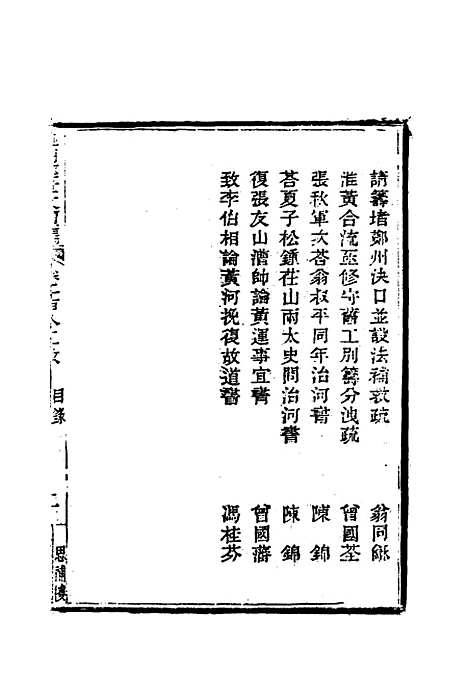 請籌堵鄭州決口並設法補救疏 翁同龢
淮黃合流亟修守舊工別籌分洩疏 曾國荃
張秋軍次荅翁叔平同年治河書 陳錦
荅夏子松鍾荏山兩太史問治河書 陳錦
復張友山漕帥論黃運事宜書 曾國藩
致李伯相論黃河挽復故道書 馮桂芬
目錄
思補樓